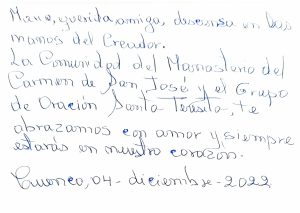 Manu, querida amiga, descansa en las
manos del Creador.
La Comunidad del Monasterio del
Carmen de San José y el Grupo
de Oración Santa Teresita, te
abrazamos con amor y siempre
estarás en nuestro corazón.
Cuenca, 04-diciembre-2022